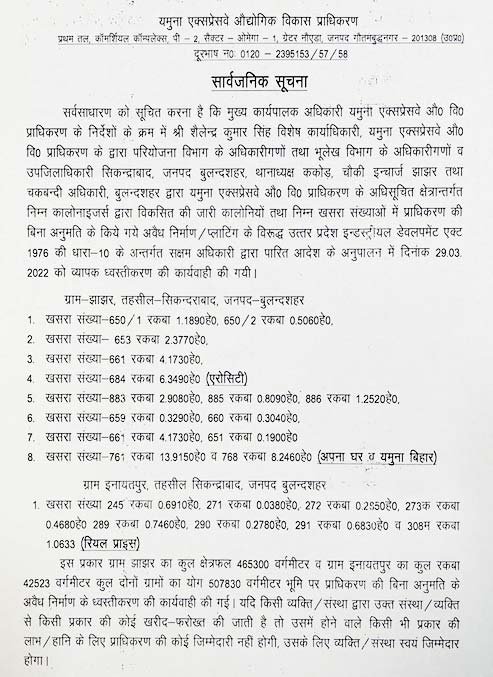 यमुना एक्सप्रेसवे औद्योगिक विकास प्राधिकरण
प्रथम तल, कॉमर्शियल कॉम्पलेक्स, पी - 2, सैक्टर - ओमेगा - 1, ग्रेटर नौएडा, जनपद गौतमबुद्धनगर - 201308 (उ०प्र०)
दूरभाष न0: 0120 - 2395153/57/58
सार्वजनिक सूचना
सर्वसाधारण को सूचित करना है कि मुख्य कार्यपालक अधिकारी यमुना एक्सप्रेसवे औ0 वि0
प्राधिकरण के निर्देशों के क्रम में श्री शैलेन्द्र कुमार सिंह विशेष कार्याधिकारी, यमुना एक्सप्रेसवे औ0
वि0 प्राधिकरण के द्वारा परियोजना विभाग के अधिकारीगणों तथा भूलेख विभाग के अधिकारीगणों व
उपजिलाधिकारी सिकन्द्राबाद, जनपद बुलन्दशहर, थानाध्यक्ष ककोड, चौकी इन्चार्ज झाझर तथा
चकबन्दी अधिकारी, बुलन्दशहर द्वारा यमुना एक्सप्रेसवे औ0 वि0 प्राधिकरण के अधिसूचित क्षेत्रान्तर्गत
निम्न कालोनाइजर्स द्वारा विकसित की जारी कालोनियों तथा निम्न खसरा संख्याओं में प्राधिकरण की
बिना अनुमति के किये गये अवैध निर्माण/प्लाटिंग के विरूद्ध उत्तर प्रदेश इन्डस्ट्रीयल डेवलपमेंट एक्ट
1976 की धारा-10 के अन्तर्गत सक्षम अधिकारी द्वारा पारित आदेश के अनुपालन में दिनांक 29.03.
2022 को व्यापक ध्वस्तीकरण की कार्यवाही की गयी।
ग्राम-झाझर, तहसील-सिकन्दराबाद, जनपद-बुलन्दशहर
1. खसरा संख्या-650/1 रकबा 1.1890हे0, 650/2 रकबा 0.5060हे0,
2. खसरा संख्या- 653 रकबा 2.3770हे0,
3. खसरा संख्या-661 रकबा 4.1730हे0,
4. खसरा संख्या-684 रकबा 6.3490हे0 (एरोसिटी)
5. खसरा संख्या-883 रकबा 2.9080हे0, 885 रकबा 0.8090हे0, 886 रकबा 1.2520हे0,
6. खसरा संख्या-659 रकबा 0.3290हे0, 660 रकबा 0.3040हे0,
7. खसरा संख्या-661 रकबा 4.1730हे0, 651 रकबा 0.1900हे0
8. खसरा संख्या-761 रकबा 13.9150हे0 व 768 रकबा 8.2460हे0 (अपना घर व यमुना बिहार)
ग्राम इनायतपुर, तहसील सिकन्द्राबाद, जनपद बुलन्दशहर
1. खसरा संख्या 245 रकबा 0.6910हे0, 271 रकबा 0.0380हे0, 272 रकबा 0.2850हे0, 273क रकबा
0.4680हे0 289 रकबा 0.7460हे0, 290 रकबा 0.2780हे0, 291 रकबा 0.6830हे0 व 308म रकबा
1.0633 (रियल प्राइस)
इस प्रकार ग्राम झाझर का कुल क्षेत्रफल 465300 वर्गमीटर व ग्राम इनायतपुर का कुल रकबा
42523 वर्गमीटर कुल दोनों ग्रामों का योग 507830 वर्गमीटर भूमि पर प्राधिकरण की बिना अनुमति के
अवैध निर्माण के ध्वस्तीकरण की कार्यवाही की गई। यदि किसी व्यक्ति/संस्था द्वारा उक्त संस्था/व्यक्ति
से किसी प्रकार की कोई खरीद-फरोख्त की जाती है तो उसमें होने वाले किसी भी प्रकार की
लाभ/हानि के लिए प्राधिकरण की कोई जिम्मेदारी नहीं होगी, उसके लिए व्यक्ति/संस्था स्वयं जिम्मेदार
होगा।